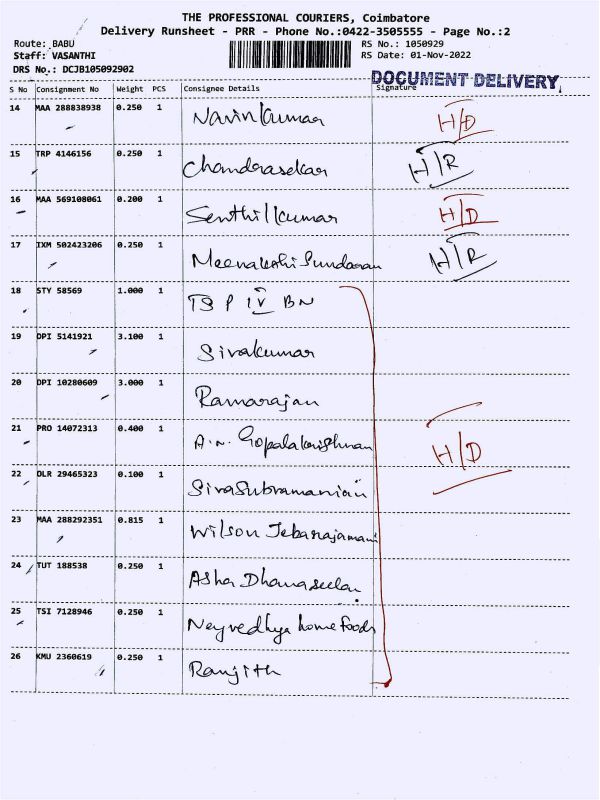 THE PROFESSIONAL COURIERS, Coimbatore
Delivery Runsheet - PRR - Phone No.:0422-3505555 - Page No.:2
Route: BABU RS No.: 1050929
Staff: VASANTHI RS Date: 01-Nov-2022
DRS No.: DCJB105092902
DOCUMENT DELIVERY
S No Consignment No Weight PCS Consignee Details Signature
14 MAA 288838938 0.250 1 Navin kumar H/D
15 TRP 4146156 0.250 1 Chandrasekar H/R
16 MAA 569108061 0.200 1 Senthil kumar H/D
17 IXM 502423206 0.250 1 Meenakshi Sundaram H/R
18 STY 58569 1.000 1 TS P IV BN
19 DPI 5141921 3.100 1 Sivakumar
20 DPI 10280609 3.000 1 Ramarajan
21 PRO 14072313 0.400 1 A.N. Gopalakrishnan H/D
22 DLR 29465323 0.100 1 Sivasubramanian
23 MAA 288292351 0.815 1 Wilson Jebarajamani
24 TUT 188538 0.250 1 Asha Dhanaseelan
25 TSI 7128946 0.250 1 Neyvedhya home foods
26 KMU 2360619 0.250 1 Ranjith